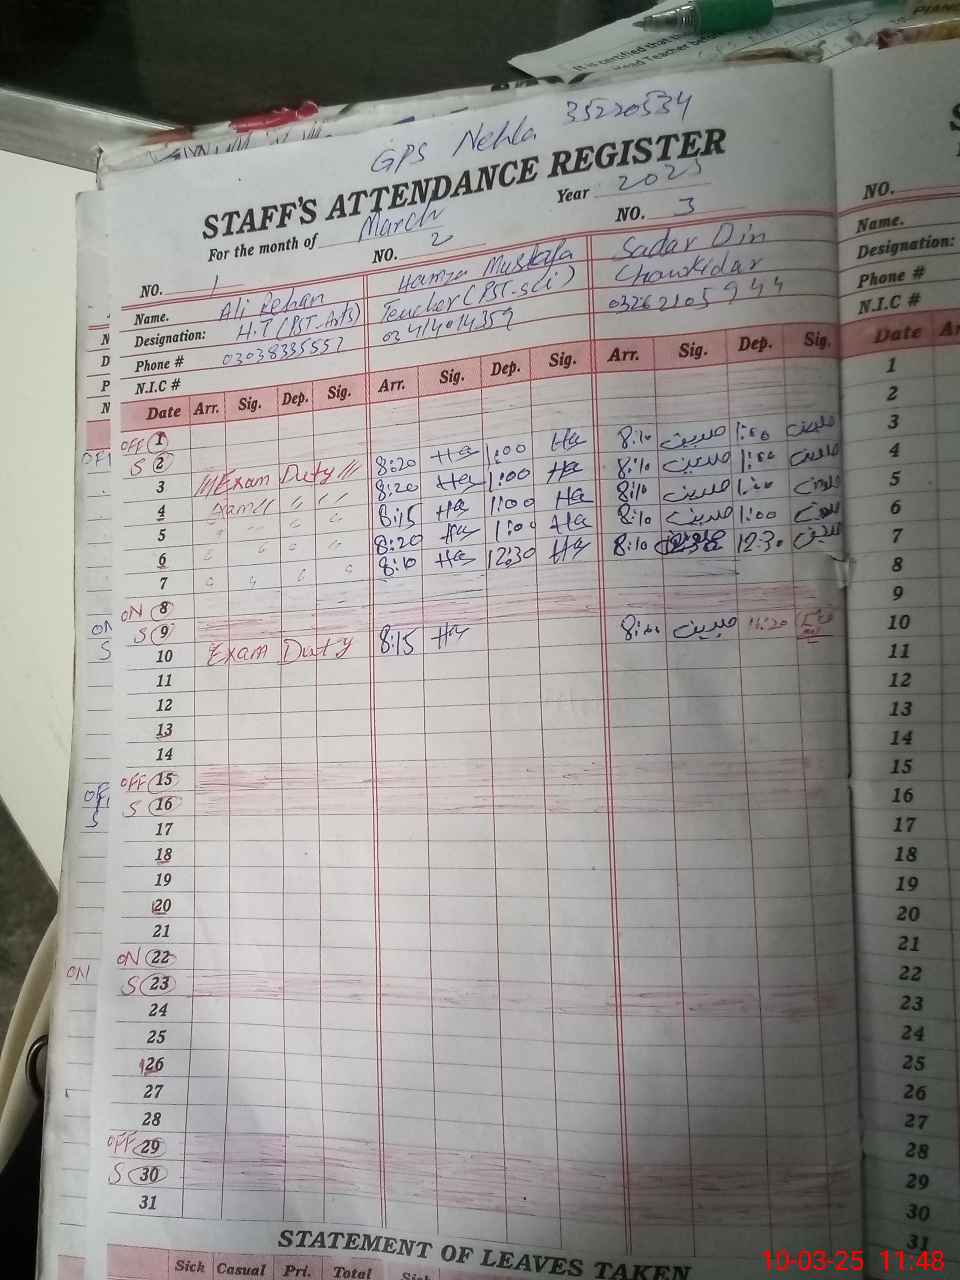 It is certified that the
Head Teacher
PIANO
GPS Nehla 35220534
STAFF'S ATTENDANCE REGISTER
For the month of March Year 2025
NO. 1 NO. 2 NO. 3
Name. Ali Rehan Hamza Mustafa Sadar Din
Designation: H.T (PST-Arts) Teacher (PST-Sci) Chowkidar
Phone # 03038335557 03414014359 03262105944
N.I.C #
Date Arr. Sig. Dep. Sig. Arr. Sig. Dep. Sig. Arr. Sig. Dep. Sig.
OFF 1
S 2
3 Exam Duty 8:20 Ha 1:00 Ha 8:10 1:00
4 Exam 8:20 Ha 1:00 Ha 8:10 1:00
5 8:15 Ha 1:00 Ha 8:10 1:00
6 8:20 Ha 1:00 Ha 8:10 1:00
7 8:10 Ha 12:30 Ha 8:10 12:30
ON 8
S 9
10 Exam Duty 8:15 Ha 11:20
11
12
13
14
OFF 15
S 16
17
18
19
20
21
ON 22
S 23
24
25
26
27
28
OFF 29
S 30
31
STATEMENT OF LEAVES TAKEN
Sick Casual Pri. Total Sick
NO.
Name.
Designation:
Phone #
N.I.C #
Date
1
2
3
4
5
6
7
8
9
10
11
12
13
14
15
16
17
18
19
20
21
22
23
24
25
26
27
28
29
30
31
10-03-25 11:48